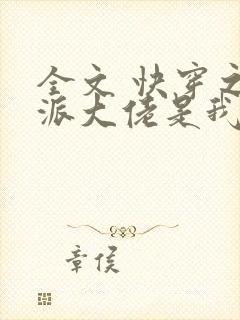 全文 快穿之
派大佬是我
章侯